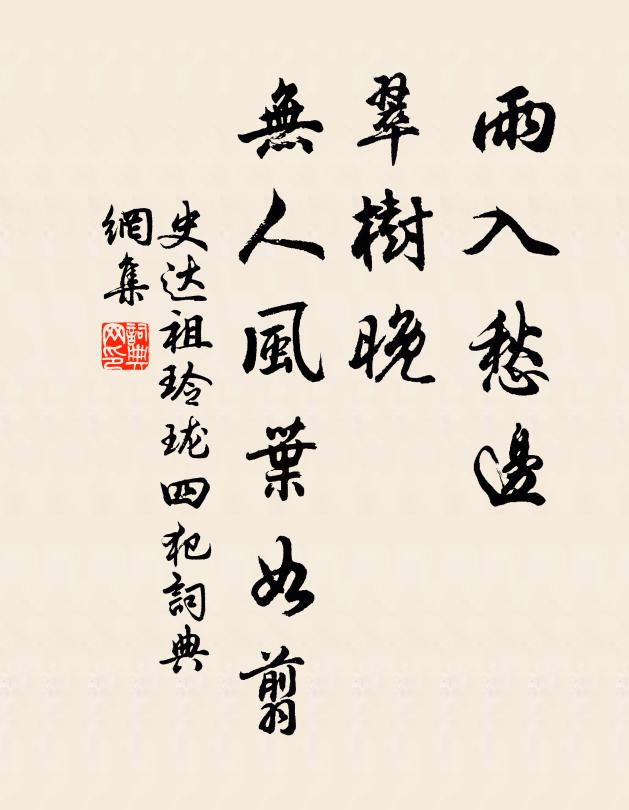 雨入愁邊
翠樹晚
無人風葉如翦
史达祖玲珑四犯詞典
網集
詞典
网印